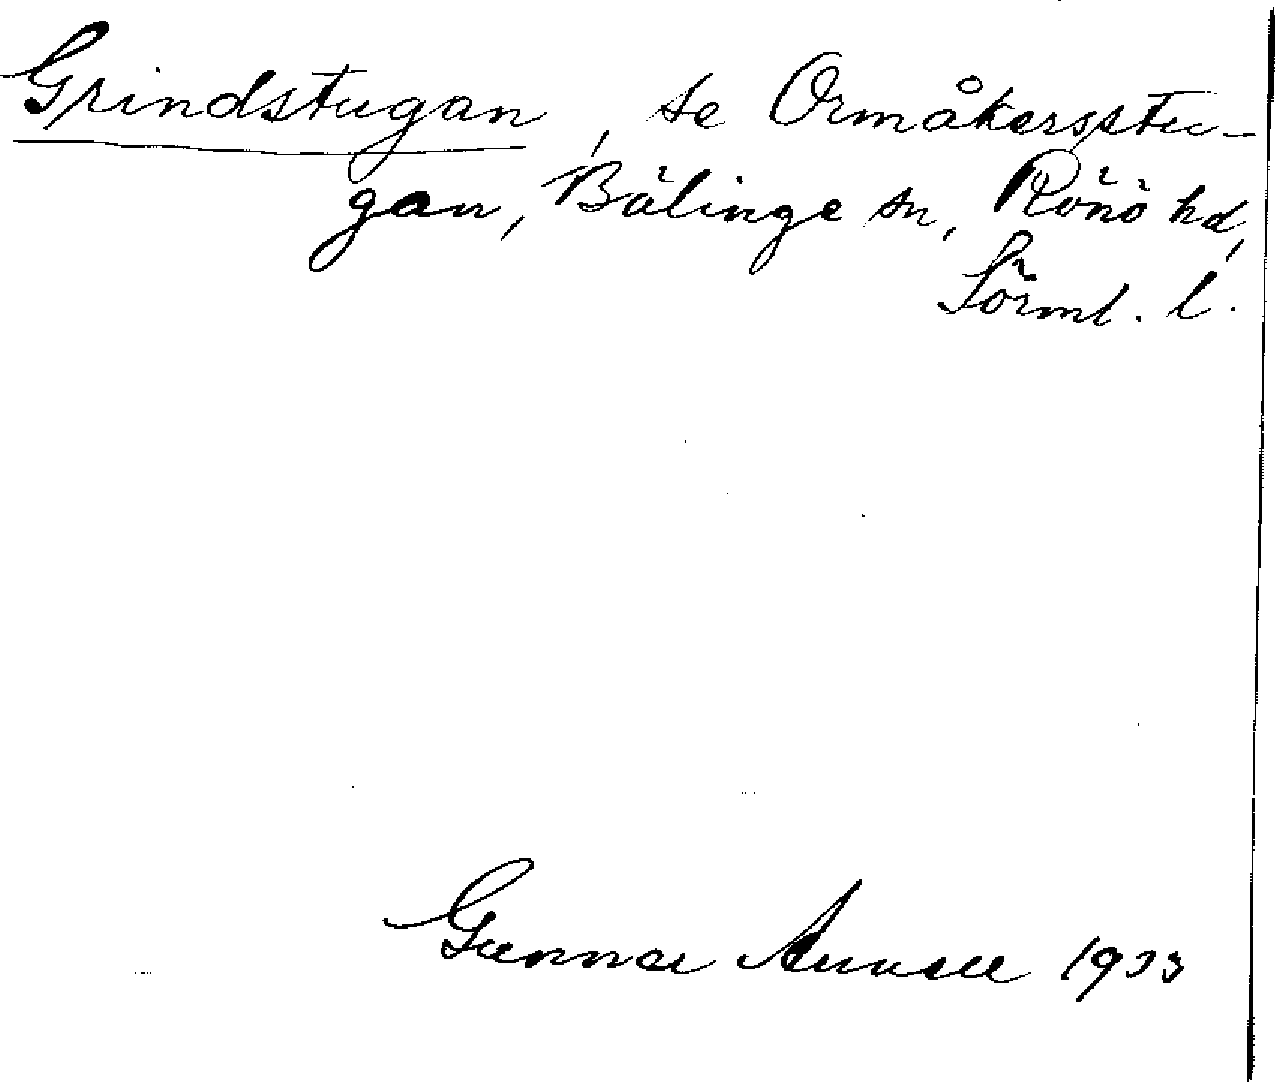 Grindstugan, se Ormåkersstu-
gan, Bälinge sn, Rönö hd,
Sörml. l.
Gunnar 1933